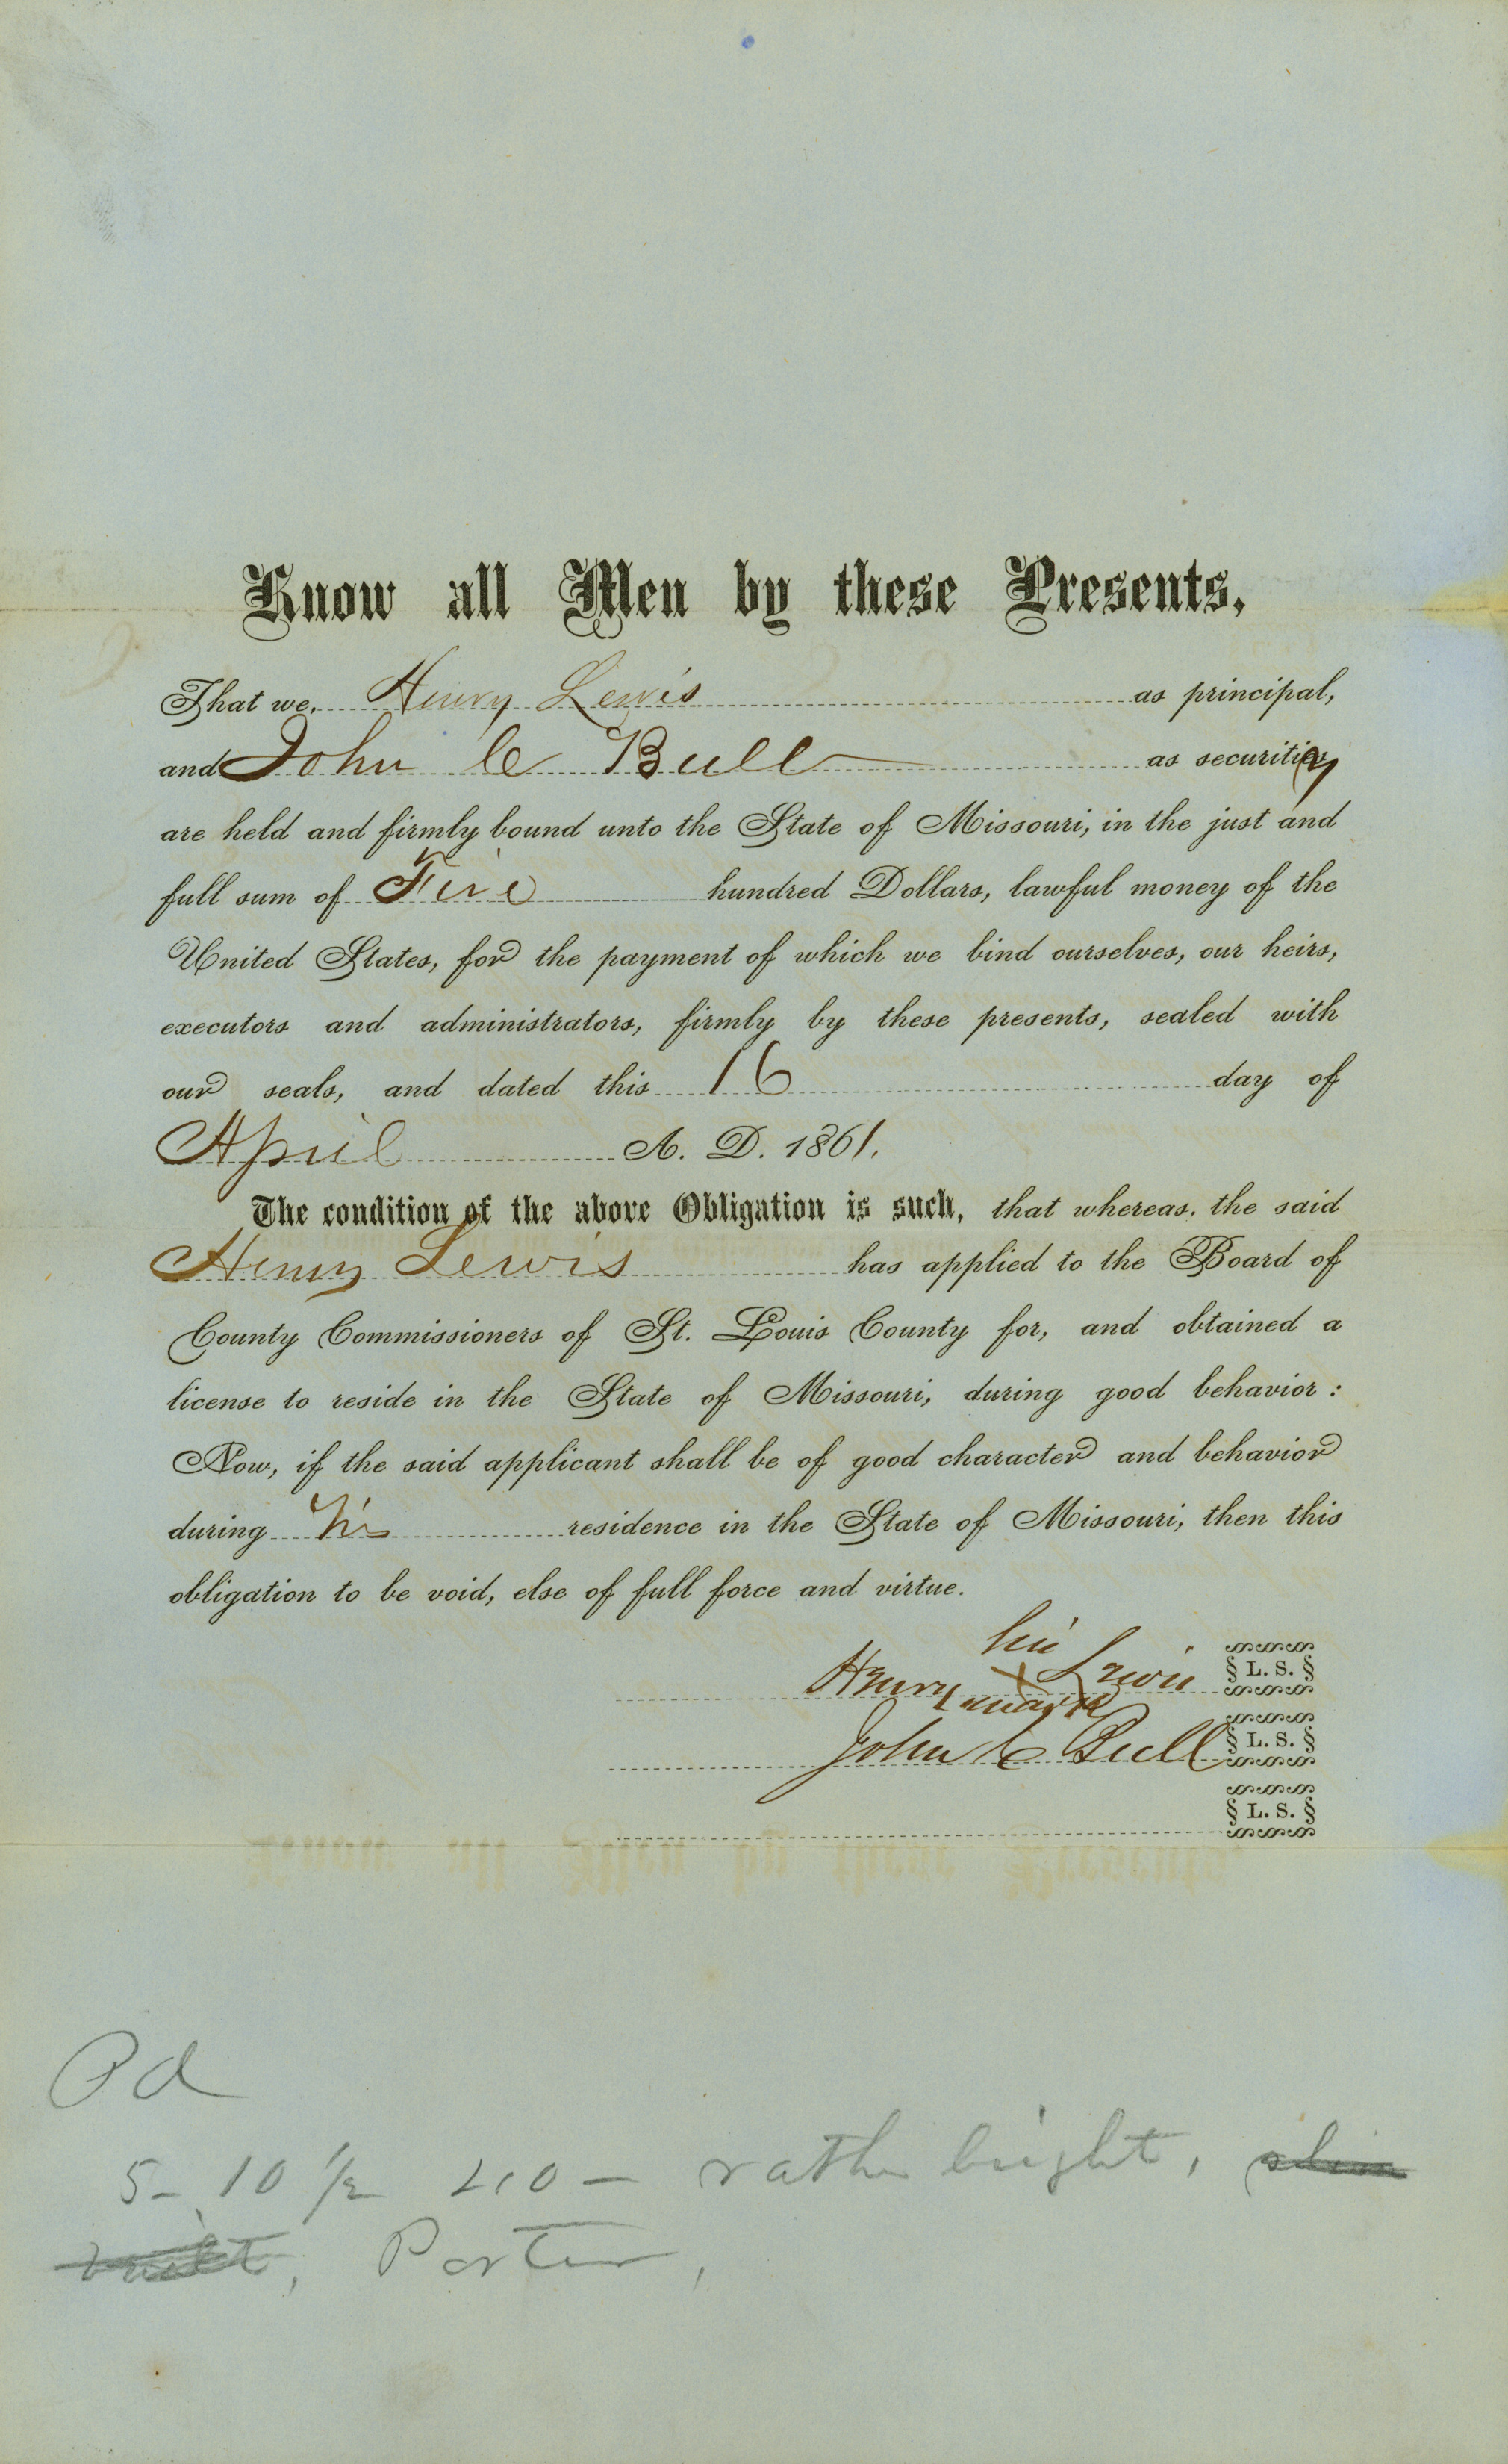 Know all Men by these Presents,
That we, Henry Lewis as principal,
and John C Bull as security
are held and firmly bound unto the State of Missouri, in the just and
full sum of Five hundred Dollars, lawful money of the
United States, for the payment of which we bind ourselves, our heirs,
executors and administrators, firmly by these presents, sealed with
our seals, and dated this 16 day of
April A. D. 1861.
The condition of the above Obligation is such, that whereas, the said
Henry Lewis has applied to the Board of
County Commissioners of St. Louis County for, and obtained a
license to reside in the State of Missouri, during good behavior:
Now, if the said applicant shall be of good character and behavior
during his residence in the State of Missouri, then this
obligation to be void, else of full force and virtue.
his
Henry X Lewis L. S.
mark
John C Bull L. S.
L. S.
Pd
5-10 1/2 210 - rather bright, slim
built, Porter,